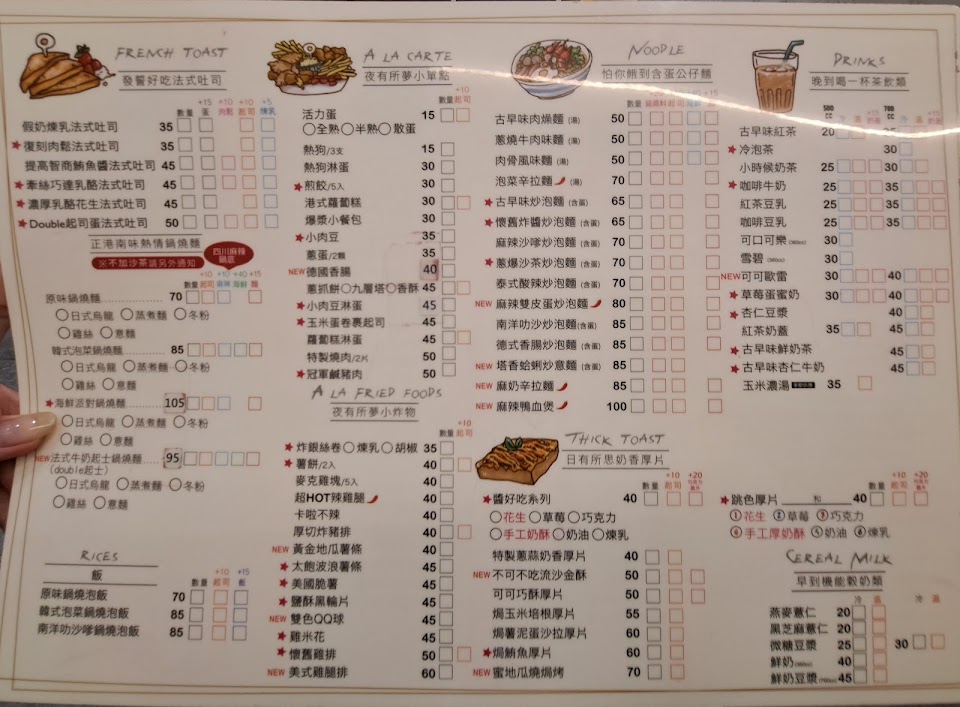 FRENCH TOAST
發誓好吃法式吐司
數量 +15蛋 +10肉鬆 +10起司 +5煉乳
假奶煉乳法式吐司 35
★復刻肉鬆法式吐司 45
提高智商鮪魚醬法式吐司 45
★牽絲巧達乳酪法式吐司 45
★濃厚乳酪花生法式吐司 45
★Double起司蛋法式吐司 50
正港南味熱情鍋燒麵
※不加沙茶請另外通知
四川麻辣鍋底
數量 +10起司 +10麻辣 +40海鮮 +15麵
原味鍋燒麵 70
日式烏龍 蒸煮麵 冬粉
雞絲 意麵
韓式泡菜鍋燒麵 85
日式烏龍 蒸煮麵 冬粉
雞絲 意麵
★海鮮派對鍋燒麵 105
日式烏龍 蒸煮麵 冬粉
雞絲 意麵
NEW法式牛奶起士鍋燒麵 95
(double起士)
日式烏龍 蒸煮麵 冬粉
雞絲 意麵
RICES
飯
數量 +10起司 +15飯
原味鍋燒泡飯 70
韓式泡菜鍋燒泡飯 85
南洋叻沙嗲鍋燒泡飯 85
A LA CARTE
夜有所夢小單點
數量 +10起司
活力蛋 15
全熟 半熟 散蛋
熱狗/3支 15
熱狗淋蛋 30
★煎餃/5入 30
港式蘿蔔糕 30
爆漿小餐包 30
★小肉豆 35
蔥蛋/2顆 35
NEW德國香腸 40
蔥抓餅 九層塔 香酥 45
★小肉豆淋蛋 45
★玉米蛋卷裹起司 45
蘿蔔糕淋蛋 45
特製燒肉/2片 50
★冠軍鹹豬肉 50
A LA FRIED FOODS
夜有所夢小炸物
數量 +10起司
★炸銀絲卷 煉乳 胡椒 35
★薯餅/2入 40
麥克雞塊/5入 40
超HOT辣雞腿 40
卡啦不辣 40
厚切炸豬排 40
NEW 黃金地瓜薯條 40
★太飽波浪薯條 45
★美國脆薯 45
★鹽酥黑輪片 45
NEW 雙色QQ球 45
★雞米花 45
★懷舊雞排 50
NEW 美式雞腿排 60
NOODLE
怕你餓到含蛋公仔麵
古早味肉燥麵 (湯) 50
蔥燒牛肉味麵 (湯) 50
肉骨風味麵 (湯) 50
泡菜辛拉麵 (湯) 70
★古早味炒泡麵 (含蛋) 65
★懷舊炸醬炒泡麵 (含蛋) 65
麻辣沙嗲炒泡麵 (含蛋) 70
★蔥爆沙茶炒泡麵 (含蛋) 70
泰式酸辣炒泡麵 (含蛋) 70
NEW 麻辣雙皮蛋炒泡麵 80
南洋叻沙炒泡麵 (含蛋) 85
德式香腸炒泡麵 (含蛋) 85
NEW 塔香蛤蜊炒意麵 (含蛋) 85
NEW 麻奶辛拉麵 85
NEW 麻辣鴨血煲 100
THICK TOAST
日有所思奶香厚片
數量 +10起司 +20
★醬好吃系列 40
花生 草莓 巧克力
手工奶酥 奶油 煉乳
特製蔥蒜奶香厚片 40
NEW 不可不吃流沙金酥 50
可可巧酥厚片 50
焗玉米培根厚片 55
焗薯泥蛋沙拉厚片 60
★焗鮪魚厚片 60
NEW 蜜地瓜燒焗烤 70
DRINKS
晚到喝一杯茶飲類
500cc 冷 溫 +15奶蓋 700cc 冷 溫 +15奶蓋
古早味紅茶 20 30
★冷泡茶 30
小時候奶茶 25 35
★咖啡牛奶 25 35
紅茶豆乳 25 35
咖啡豆乳 25 35
可口可樂 30
雪碧 30
NEW可可歐雷 30 40
★草莓蛋蜜奶 30 40
★杏仁豆漿 40
紅茶奶蓋 35 45
★古早味鮮奶茶 45
★古早味杏仁牛奶 45
玉米濃湯 35
數量 +10起司 +20
★跳色厚片 和 40
①花生 ②草莓 ③巧克力
④手工厚奶酥 ⑤奶油 ⑥煉乳
CEREAL MILK
早到機能穀奶類
冷 溫 冷 溫
燕麥薏仁 20
黑芝麻薏仁 20
微糖豆漿 25 30
鮮奶 40
鮮奶豆漿 45